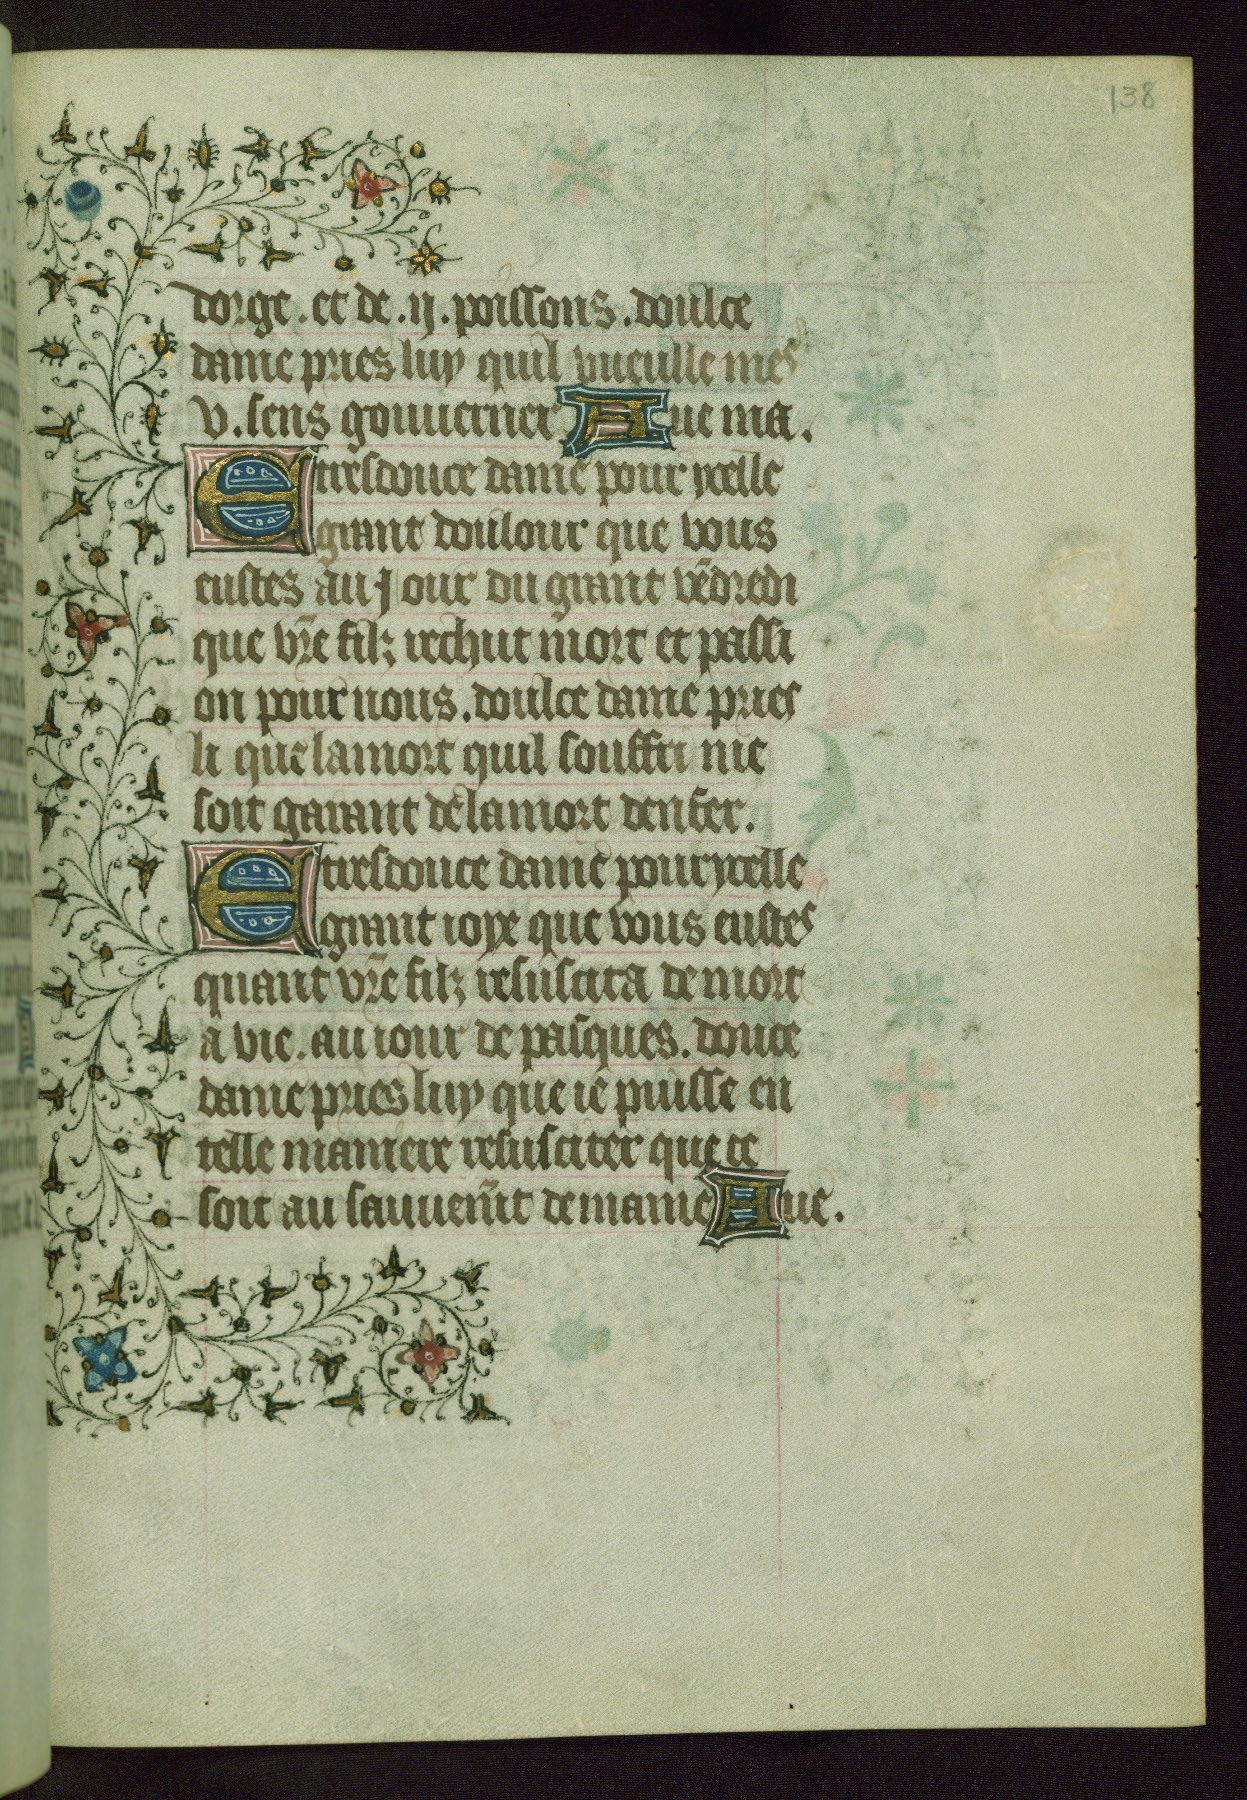 138
dorge. et de .ij. poissons. doulce
dame pries luy quil vueulle mes
v. sens gouuerner Aue ma.
E tresdouce dame pour ycelle
grant doulour que vous
eustes au jour du grant vēdredi
que vr̄e filz rechut mort et passi
on pour nous. doulce dame pries
li que la mort quil souffri me
soit garant de la mort denfer.
E tresdouce dame pour ycelle
grant ioye que vous eustes
quant vr̄e filz resuscita de mort
a vie. au iour de pasques. douce
dame pries luy que ie puisse en
telle maniere resusciter que ce
soit au sauuem̄t de mame Aue.